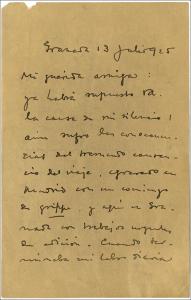 Granada 13 Julio 925
Mi querida amiga:
ya habrá supuesto Vd.
la causa de mi silencio!
aun sufro las consecuen-
cias del tremendo cansan-
cio del viaje, agravado en
Madrid con un comienzo
de grippe, y aquí en Gra-
nada con trabajos urgentes
de edición. Cuando ter-
minaba mi labor diaria